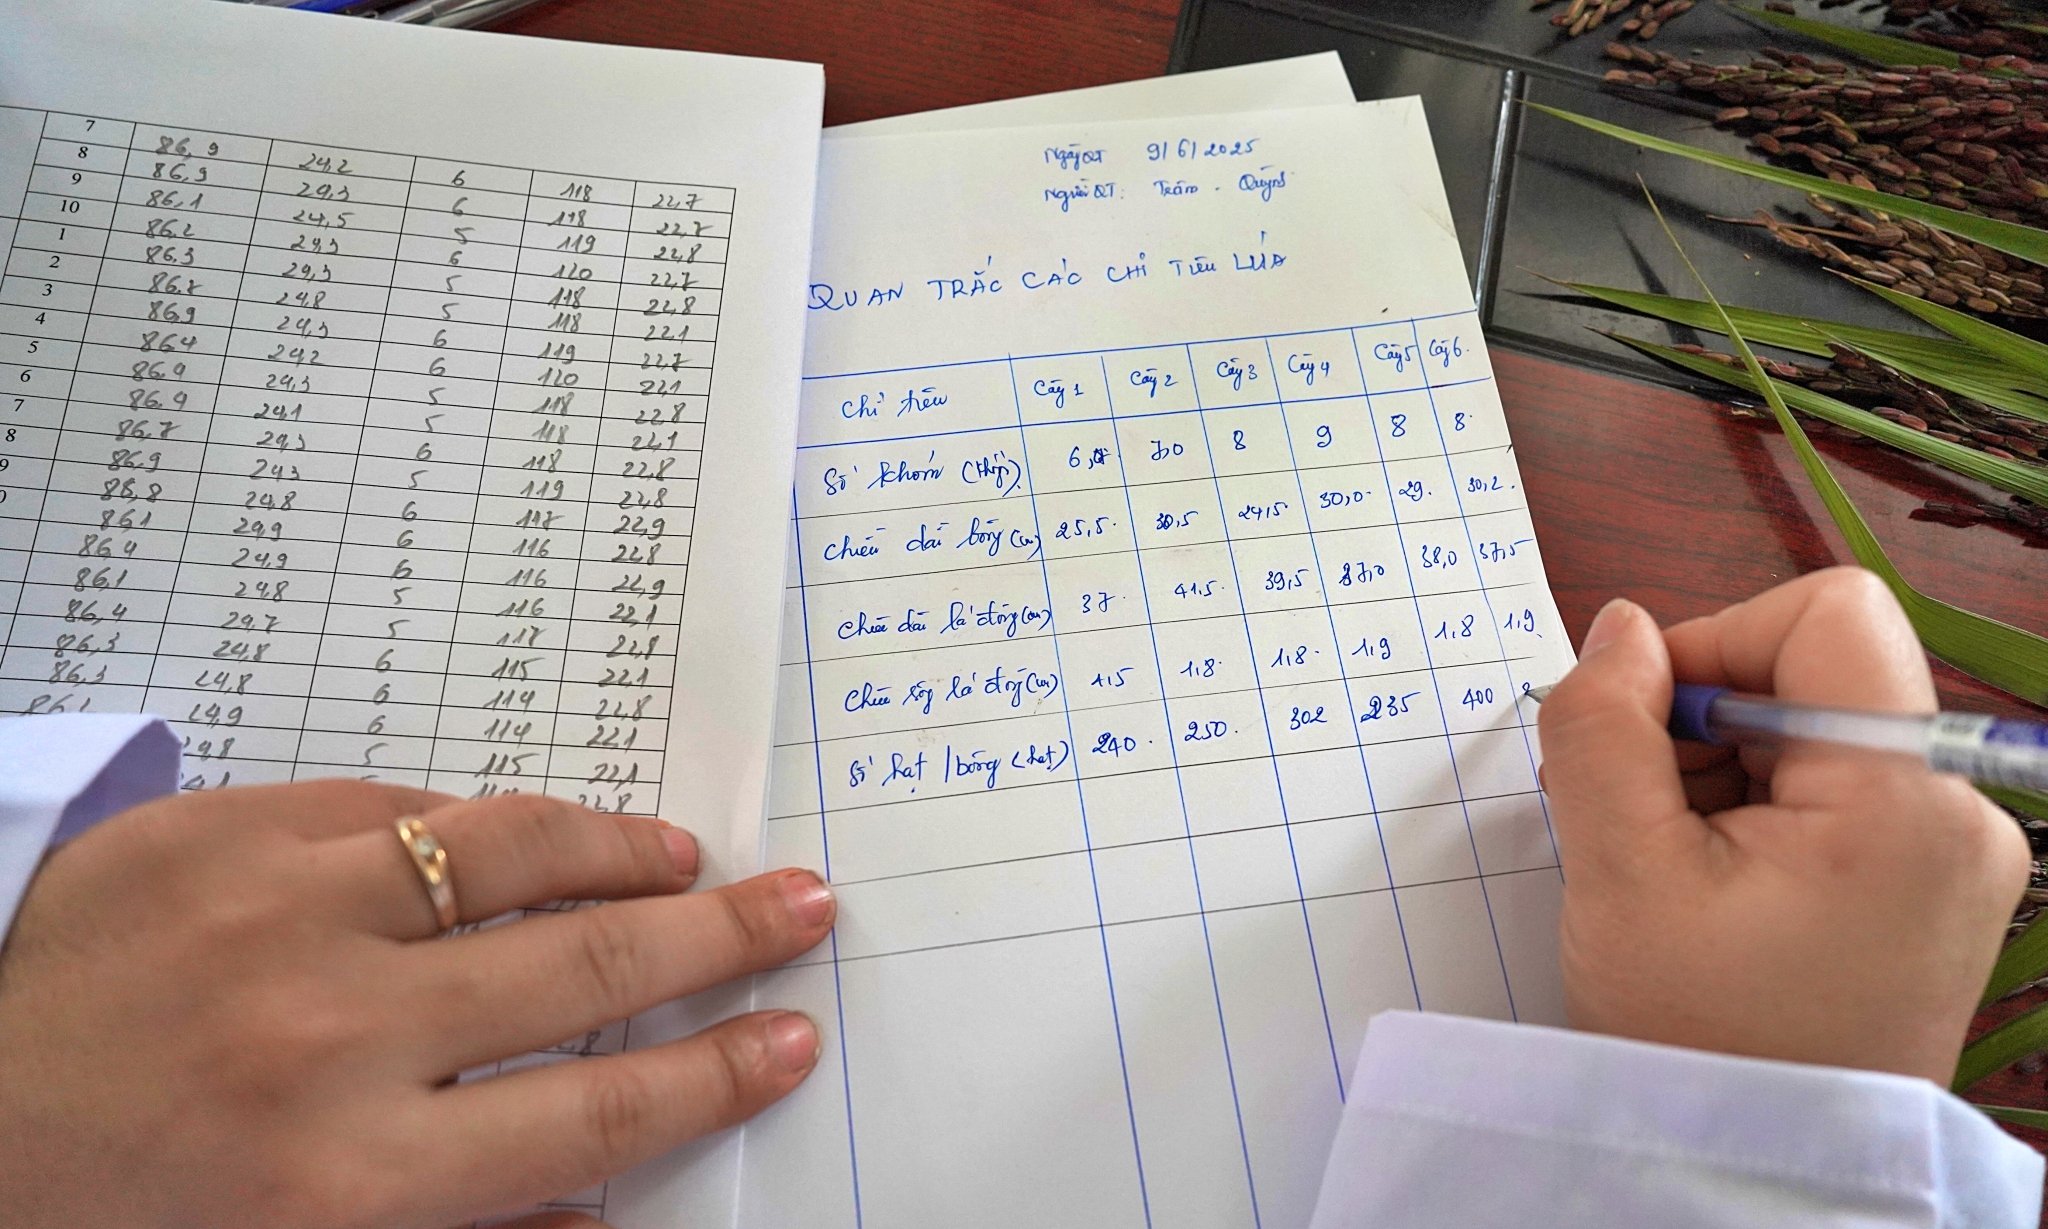 7 86,9 24,2 6 118 22,7
8 86,9 24,3 6 118 22,7
9 86,1 24,5 5 119 22,8
10 86,2 24,3 6 120 22,7
1 86,3 24,3 5 118 22,8
2 86,7 24,8 5 118 22,1
3 86,9 24,3 6 119 22,7
4 86,4 24,2 6 120 22,1
5 86,9 24,3 5 118 22,8
6 86,9 24,1 5 118 22,1
7 86,7 24,3 6 118 22,8
8 86,9 24,3 5 119 22,8
9 86,8 24,8 6 117 22,9
86,1 24,9 6 116 22,8
86,4 24,9 6 116 22,9
86,1 24,8 5 116 22,1
86,4 24,7 5 117 22,8
86,3 24,8 6 115 22,1
86,3 24,8 6 114 22,8
24,9 6 114 22,1
5 115 22,1
22,8
Ngày QT 9/6/2025
Người QT: Trâm - Quỳnh
QUAN TRẮC CÁC CHỈ TIÊU LÚA
Chỉ tiêu Cây 1 Cây 2 Cây 3 Cây 4 Cây 5 Cây 6
Số khóm 6,0 7,0 8 9 8 8
Chiều dài bông (cm) 25,5 30,5 24,5 30,0 29 30,2
Chiều dài lá đòng (cm) 37 41,5 39,5 37,0 38,0 37,5
Chiều rộng lá đòng (cm) 1,5 1,8 1,8 1,9 1,8 1,9
Số hạt / bông (hạt) 240 250 302 235 400